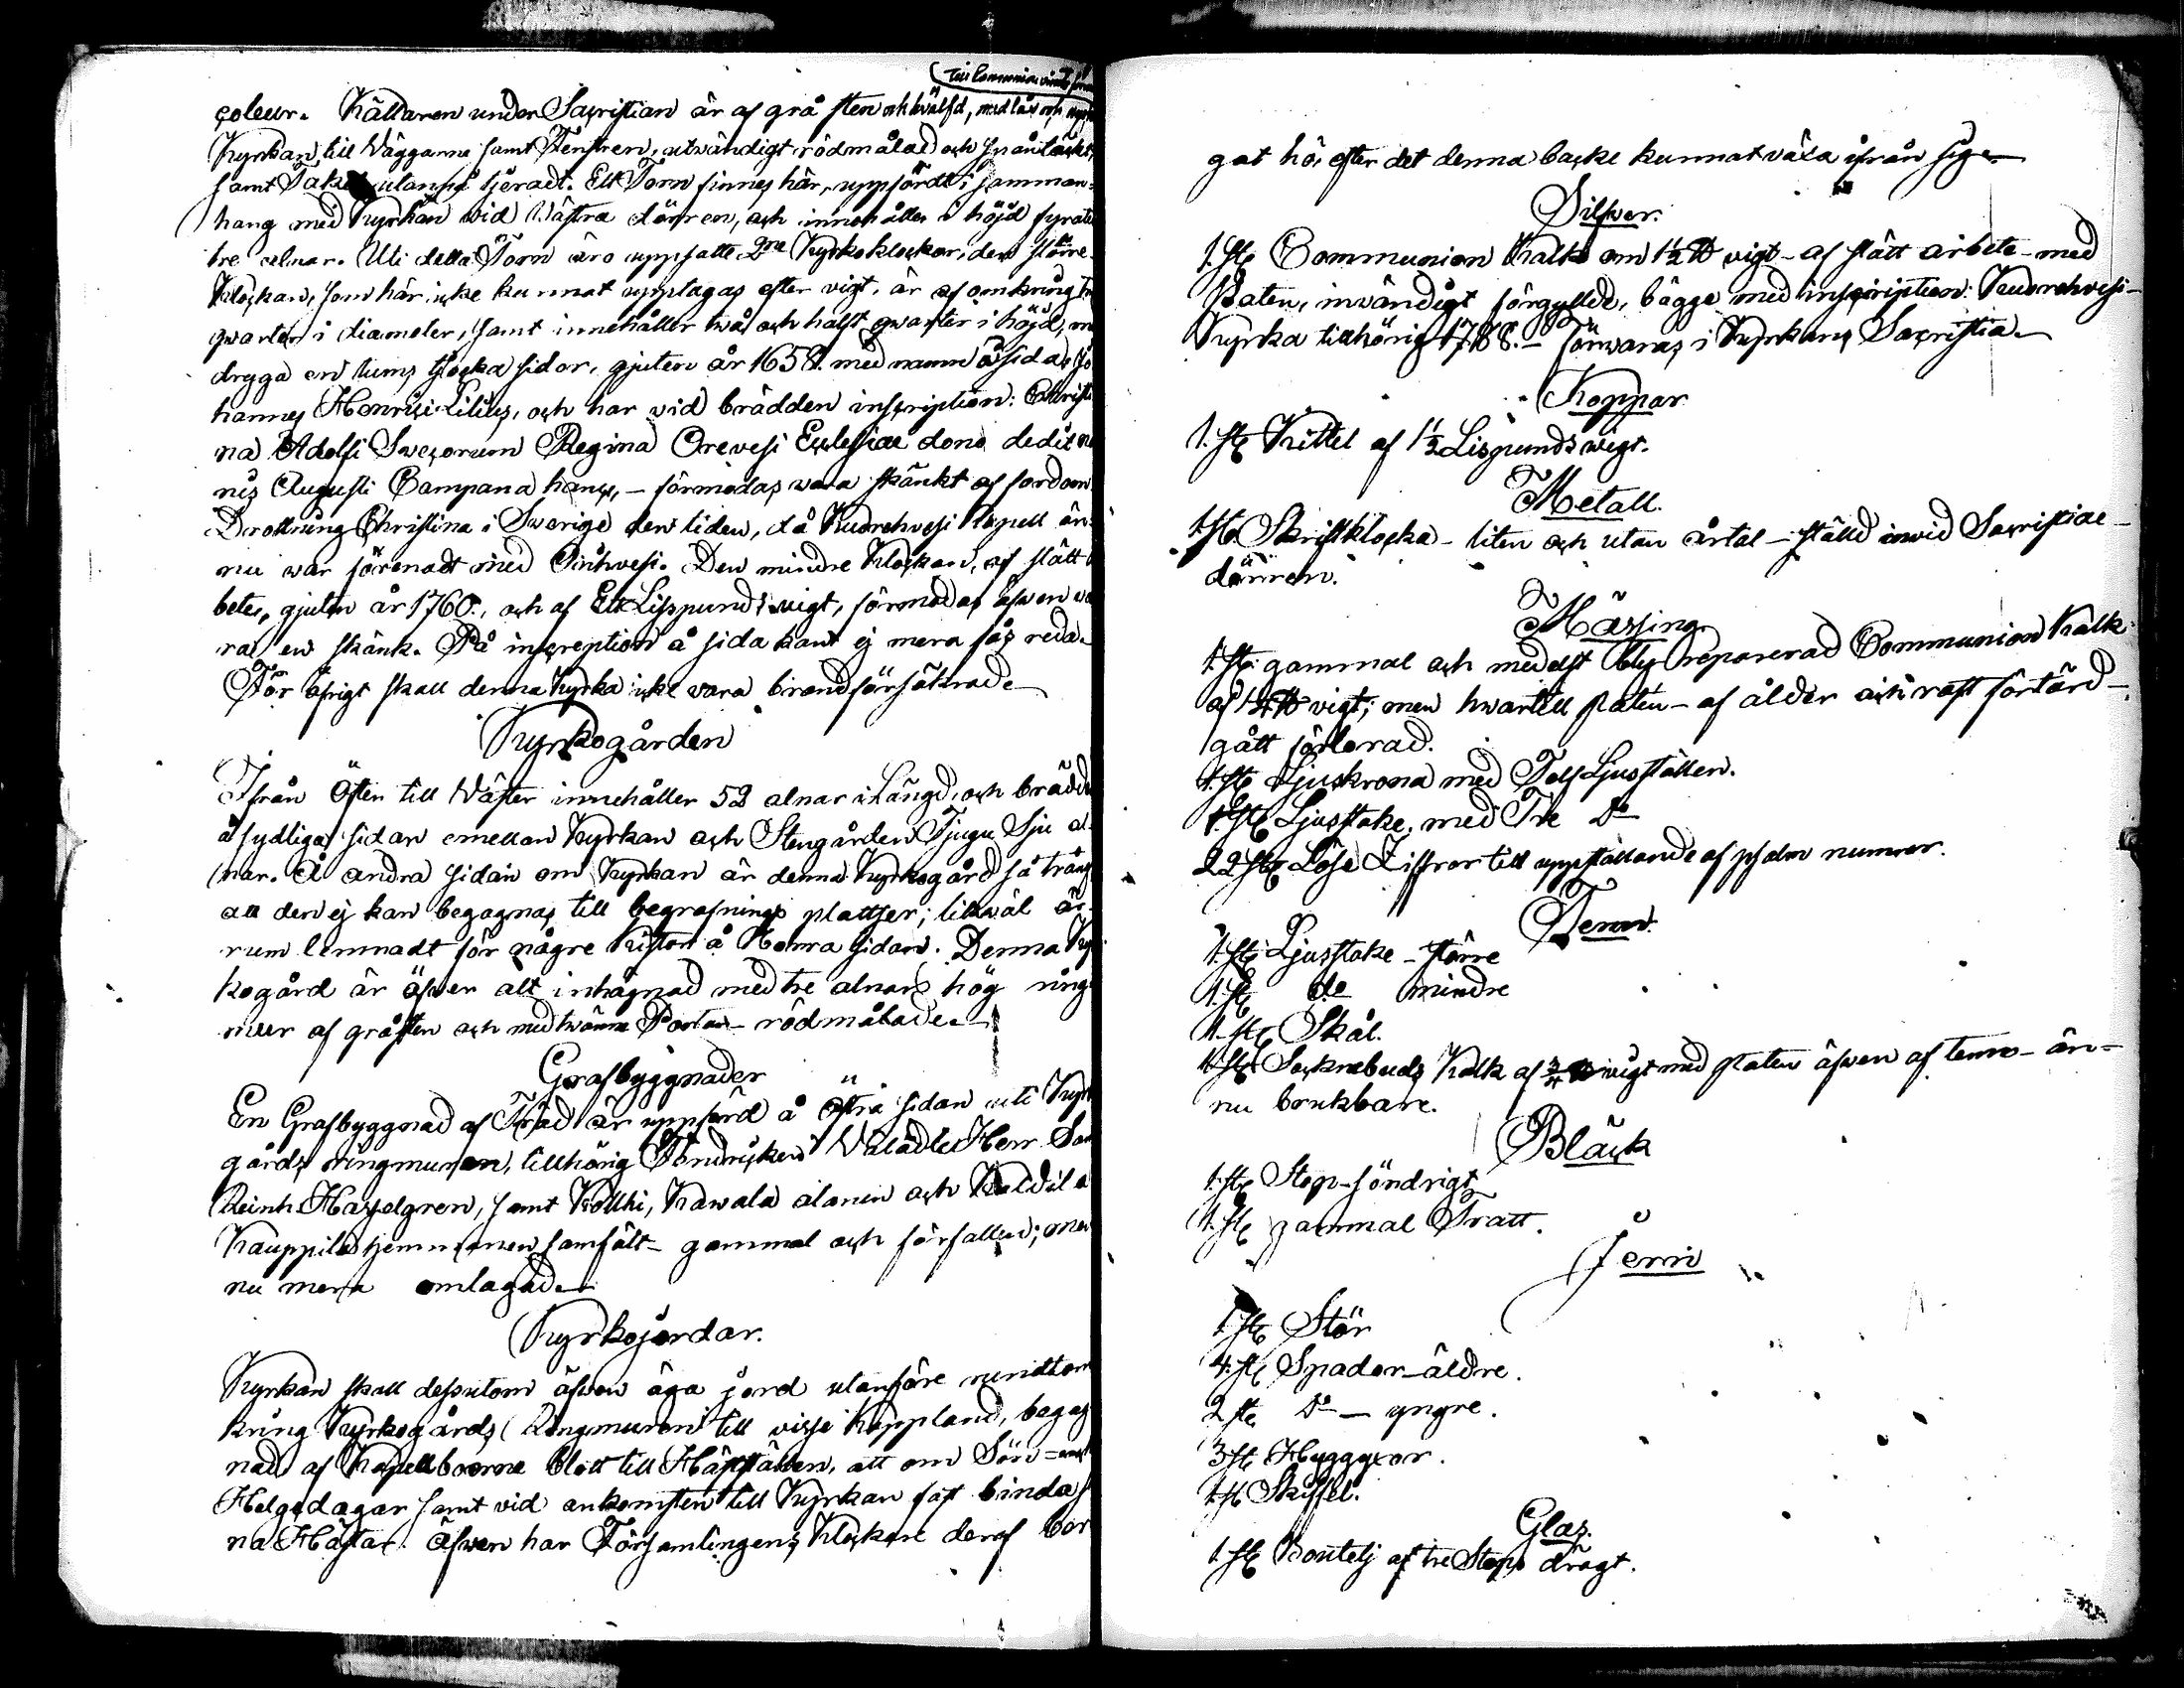 Till Communion
coleur. Källaren under Sacristian är af grå sten och hvälfd, med lås och
Kyrkan, till Väggarna samt Fenstren, utvändigt rödmålad och spåntäckt,
samt Taket utanpå tjeradt. Ett Torn finnes här, uppfördt i samman-
hang med Kyrkan vid Västra dörren, och innehåller i höjd fyratio
tre alnar. Uti detta Torn äro uppsatte 2ne Kyrkoklockor, den större
Klockan, som här icke kunnat upptagas efter vigt, är af omkring
qwarter i diameter, samt innehåller två och halft qwarter i höjd, m
dryga en tums tjocka sidor, gjuten år 1658. med namn å sidan Jo
hannes Henrici Lilius, och har vid brädden inscription: Christi
na Adolfi Svecorum Regina Orevesi Ecclesiæ dono dedit
nis Augusti Campana hanc, – förmodas vara skänkt af fordom
Drottning Christina i Sverige den tiden, då Kuorehvesi Capell än
nu war förenadt med Orihvesi. Den mindre Klockan, af slätt
bete, gjuten år 1760., och af Ett Lispunds vigt, förmodas äfven va
ra en skänk. På inscreption å sida kant ej mera fås reda.
För öfrigt skall denna Kyrka icke vara brandförsäkrad.
Kyrkogården
Ifrån Öster till Väster innehåller 52 alnar i Längd, och brädd
å sydliga sidan emellan Kyrkan och Stengården Tjugu Sju al
nar. Å andra sidan om Kyrkan är denna Kyrkogård så trång
att den ej kan begagnas till begrafnings plattser; likväl är
rum lemnadt för några Kistor å Norra sidan. Denna Kyr
kogård är öfver alt inhägnad med tre alnars hög ring
muur af gråsten och med twänne Portar – rödmålade.
Grafbyggnader
En Grafbyggnad af Träd är uppförd å östra sidan uti Kyrk
gårds ringmuren, tillhörig Fendricken Välädle Herr
Reinh. Hasselgren, samt Kollki, Kawala alanen och
Kauppila hemmanen samfält – gammal och förfallen; men
nu mera omlagad.
Kyrkojordar.
Kyrkan skall dessutom äfven äga jord utanföre rundtom
kring Kyrkogårds Ringmuren till visse Kappland, begag
nad af Kapellboerne blott till Häststället, att om Sön-
Helgedagar samt vid ankomsten till Kyrkan fast binda si
na Hästar. Äfven har Församlingens Klockare deraf ber
gat hö, efter det denna backe kunnat växa ifrån sig.
Silfver.
1. st. Communion Kalk om 1½ ℔ vigt – af slätt arbete – med
Paten, invändigt förgylld, bägge med inscription: Kuorehvesi
Kyrka tillhörig 1788. – Förvaras i Kyrkans Sacristia.
Koppar
1. st. Kittel af 1½ Lispunds vigt.
Metall.
1. st. Skriftklocka – liten och utan årtal – ställd invid Sacristiae
dörren.
Mässing
1. st. gammal och medelst bly reparerad Communion Kalk
af ℔ vigt; men hwartill paten – af ålder och rost förtärd –
gått förlorad.
1. st. Ljuskrona med Tolf Ljusställen.
1. st. Ljusstake, med Tre Do
22 st. Löse Ziffror till uppställande af psalm numror.
Tenn.
1. st. Ljusstake – större
1. st. do mindre
1. st. Skål.
1. st. Socknebuds Kalk af ¾ ℔ vigt med paten äfven af tenn – än-
nu brukbare.
Bläck
1. st. Stop – söndrigt
1. st. gammal Tratt.
Jern
1. st. Stör
4. st. Spador – äldre.
2 st. Do – yngre.
3. st. Huggyxor.
1. st. Skiffel.
Glas.
1. st. Boutelj af tre Stops drägt.